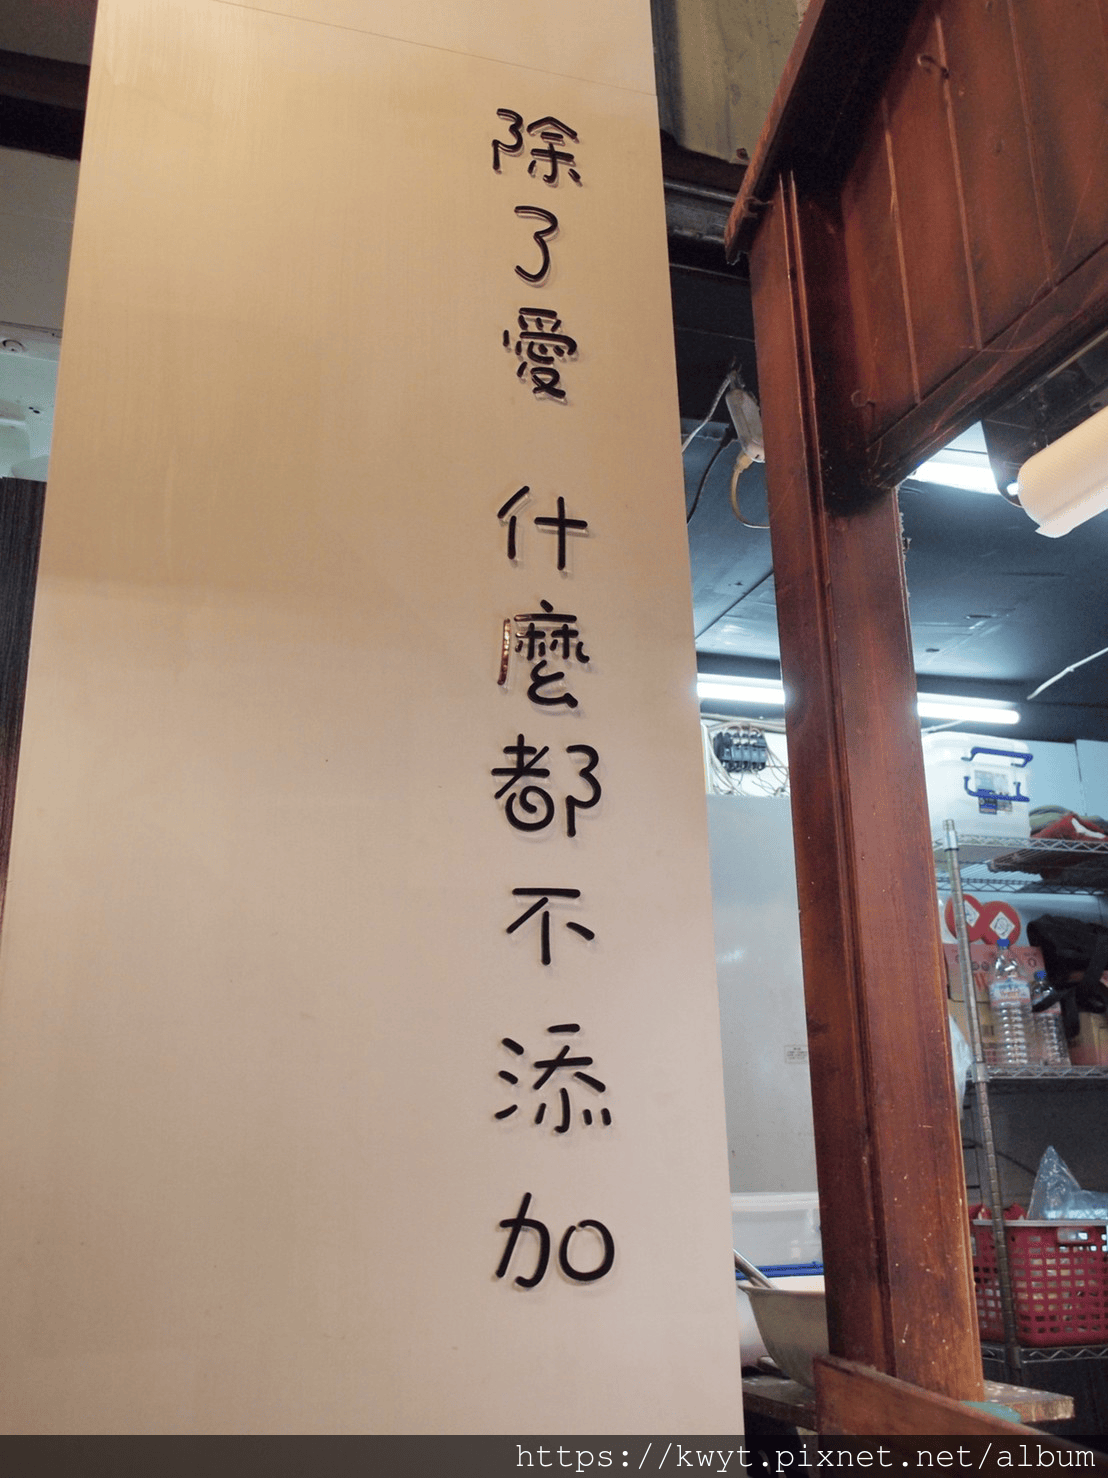 除了愛 什麼都不添加
https://kwyt.pixnet.net/album